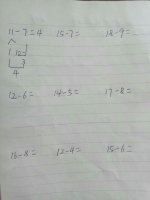 11-7=4 15-7= 18-9=
1 10
3
4
12-6= 14-5= 17-8=
16-8= 12-4= 15-6=